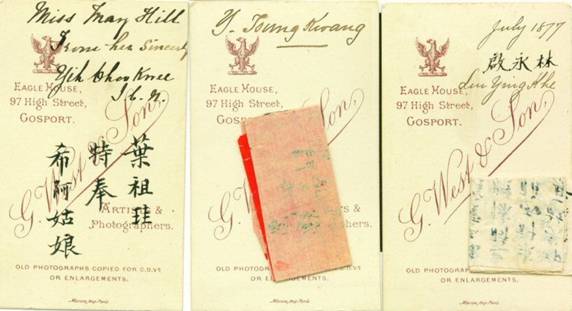 Miss May Hill
From her sincerely
Yih Choo Kwee
I.C.N.
EAGLE HOUSE,
97 HIGH STREET,
GOSPORT.
G. West & Son,
ARTISTS &
Photographers.
葉祖珪
特奉
希阿姑娘
OLD PHOTOGRAPHS COPIED FOR C.D.VT
OR ENLARGEMENTS.
Y. Toung Kwang
EAGLE HOUSE,
97 HIGH STREET,
GOSP
Son,
S &
hers.
OLD PHOTOGRAPHS COPIED FOR C.D.VT
OR ENLARGEMENTS.
July 1877
林永啟
Lin Ying Khe
EAGLE HOUSE,
97 HIGH STREET,
GOSPORT.
G. West & Son,
OLD PHOTOGRAPHS COPIED FOR
OR ENLARGEMENTS.